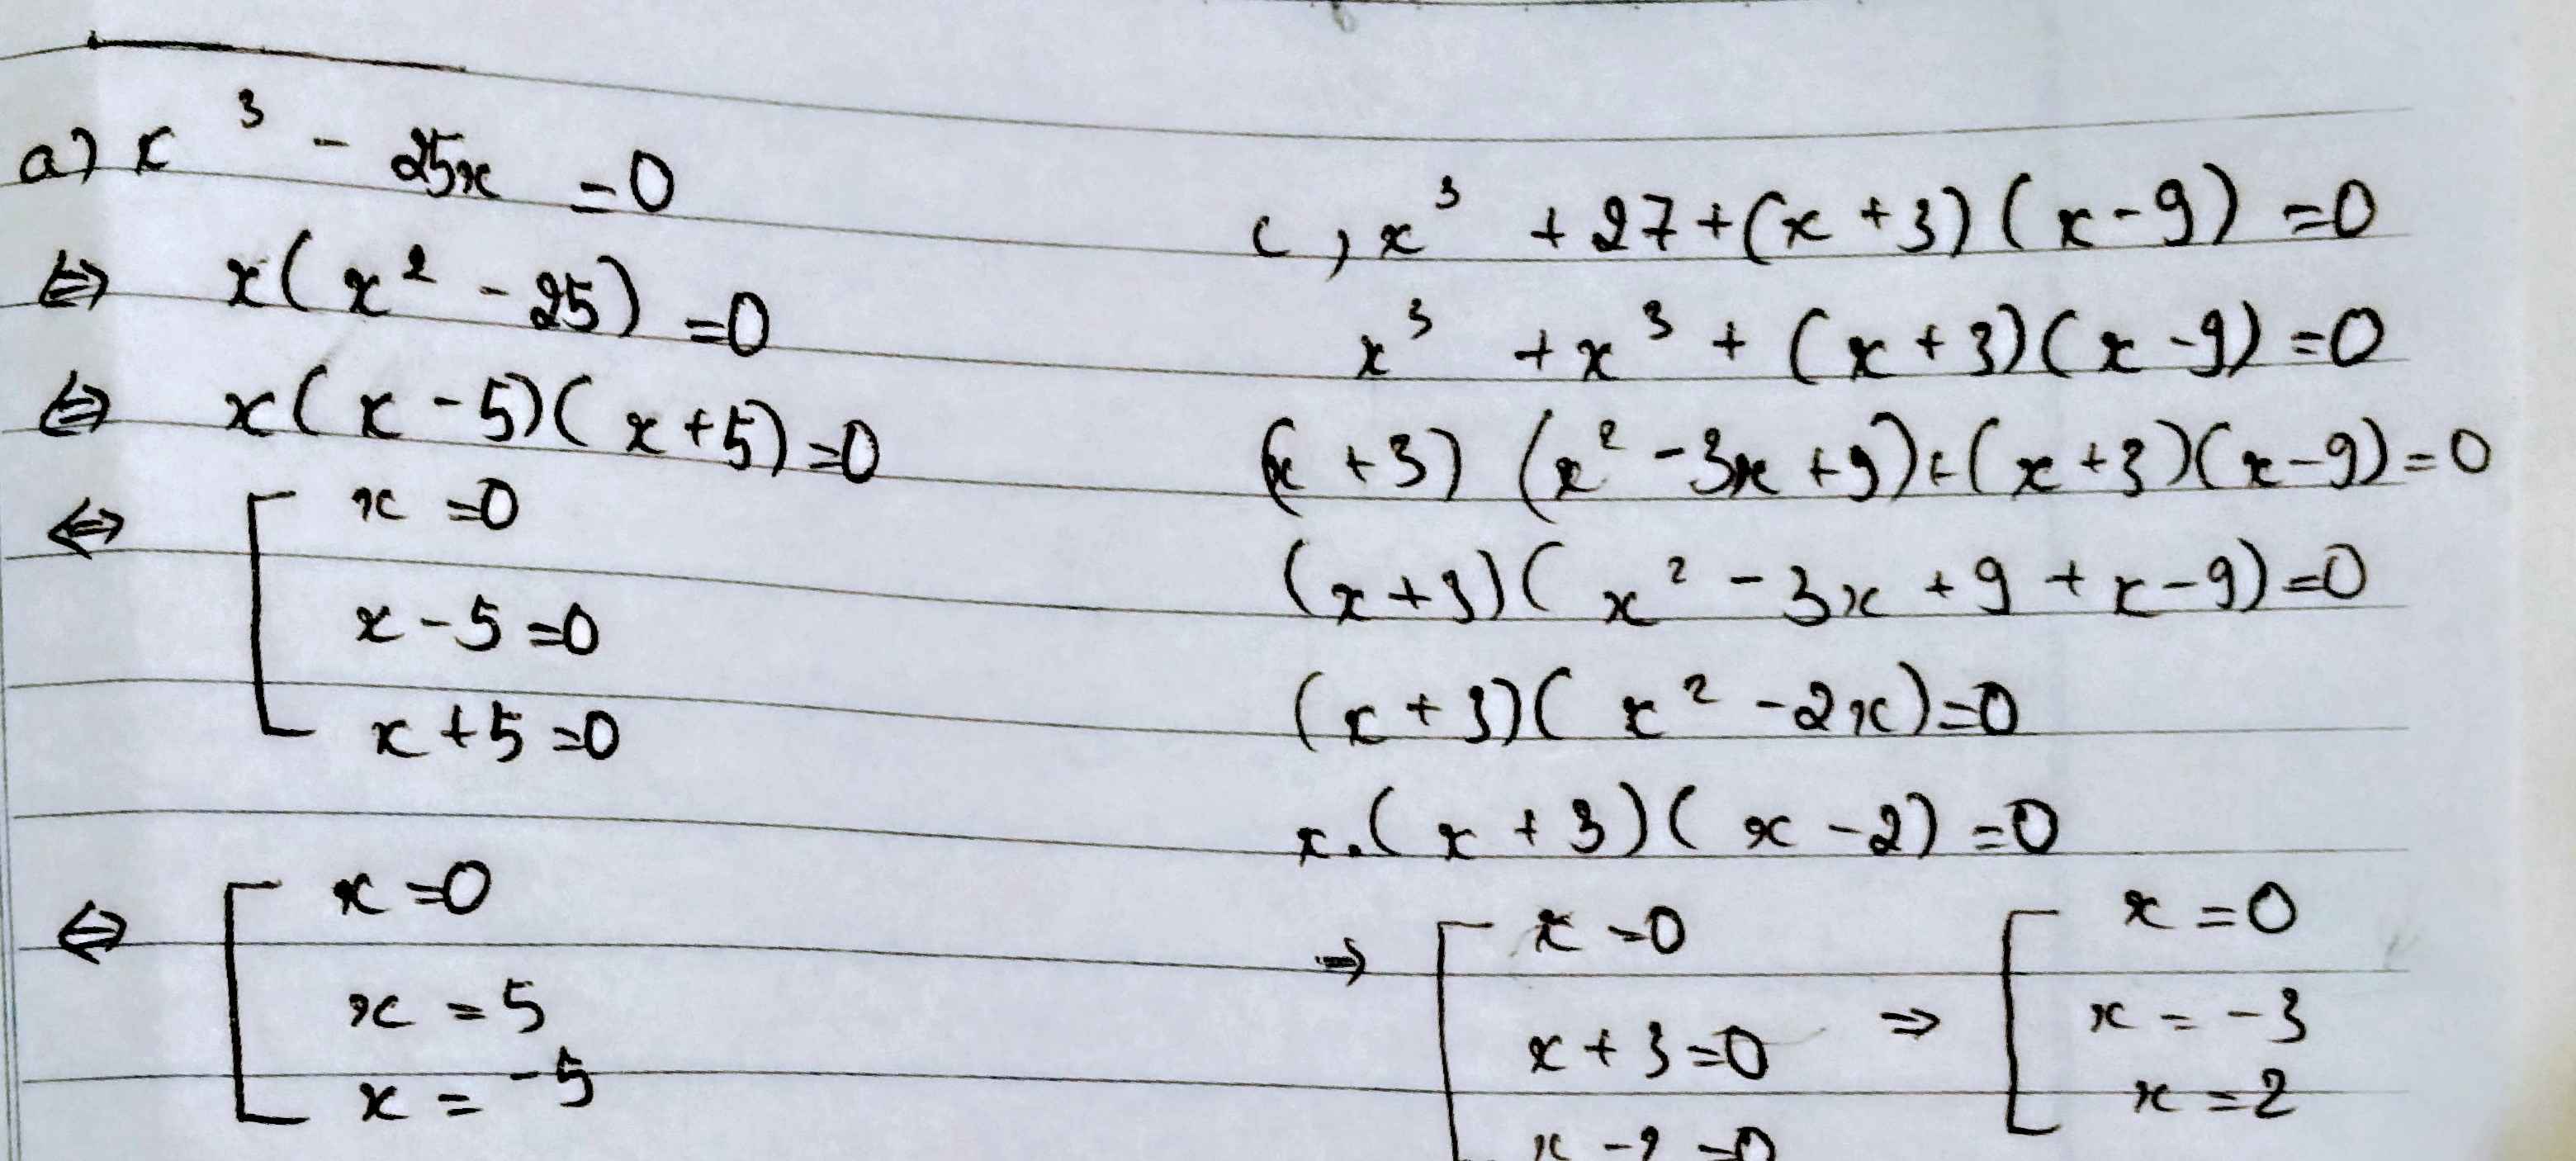 a) x³ - 25x = 0
⇔ x(x² - 25) = 0
⇔ x(x - 5)(x + 5) = 0
⇔ [ x = 0
x - 5 = 0
x + 5 = 0
⇔ [ x = 0
x = 5
x = -5
c, x³ + 27 + (x + 3)(x - 9) = 0
x³ + x³ + (x + 3)(x - 9) = 0
(x + 3) (x² - 3x + 9) + (x + 3)(x - 9) = 0
(x + 3)(x² - 3x + 9 + x - 9) = 0
(x + 3)(x² - 2x) = 0
x.(x + 3)(x - 2) = 0
⇒ [ x = 0
x + 3 = 0
x - 2 = 0
⇒ [ x = 0
x = -3
x = 2